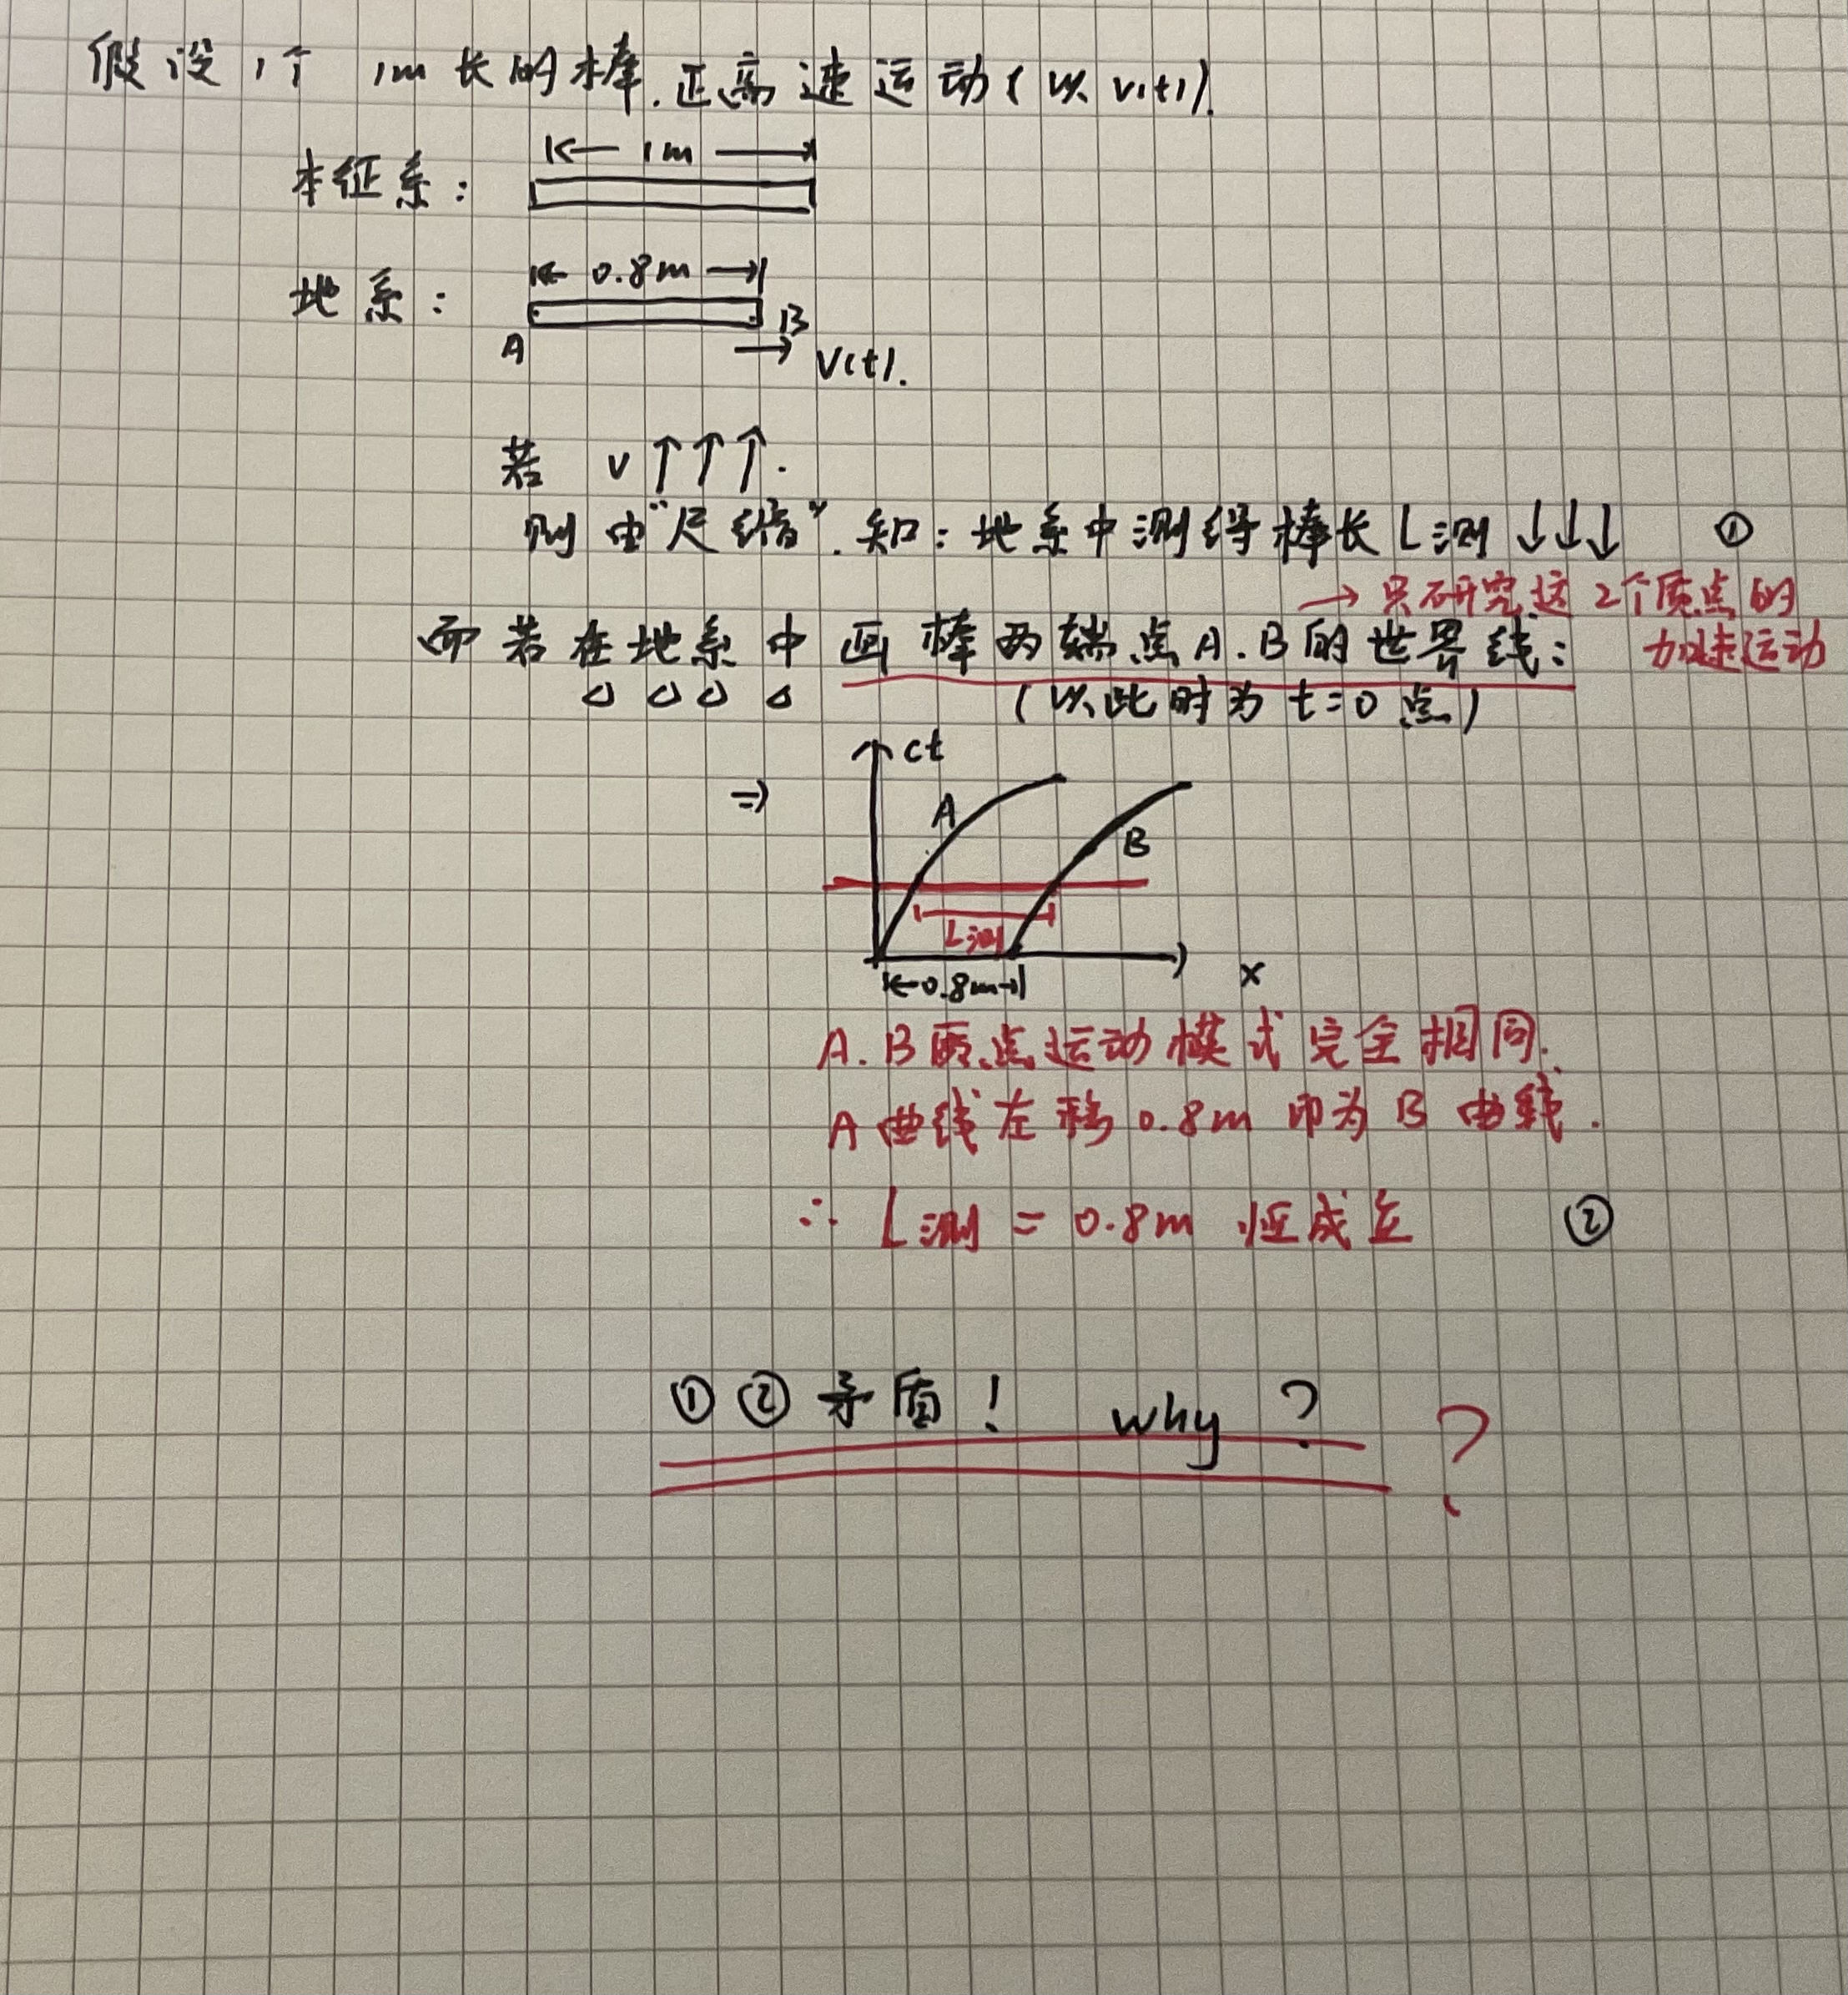 假设1个 1m 长的棒.正高速运动(以 v(t)).
|← 1m →|
本征系:
|← 0.8m →|
地系:
A B
→ v(t).
若 v↑↑↑.
则由"尺缩".知:地系中测得棒长 L测 ↓↓↓ ①
→ 只研究这2个质点的
加速运动
而若在地系中画棒两端点A.B的世界线:
(以此时为 t=0 点)
⇒ ct
A
B
L测
|←0.8m→| x
A.B两点运动模式完全相同.
A曲线左移0.8m即为B曲线.
∴ L测 = 0.8m 恒成立 ②
①②矛盾! why? ?